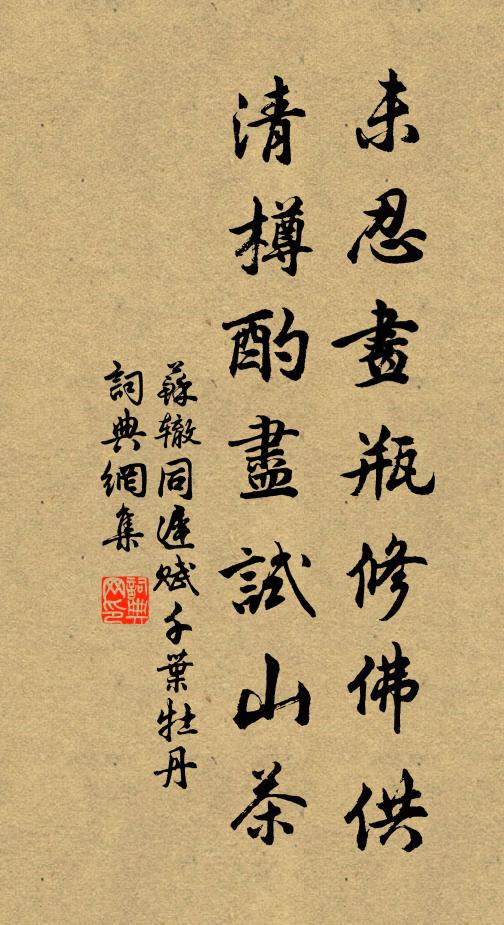 未忍畫瓶修佛供
清樽酌盡試山茶
蘇轍同遲賦千葉牡丹
詞典網集
詞典網印